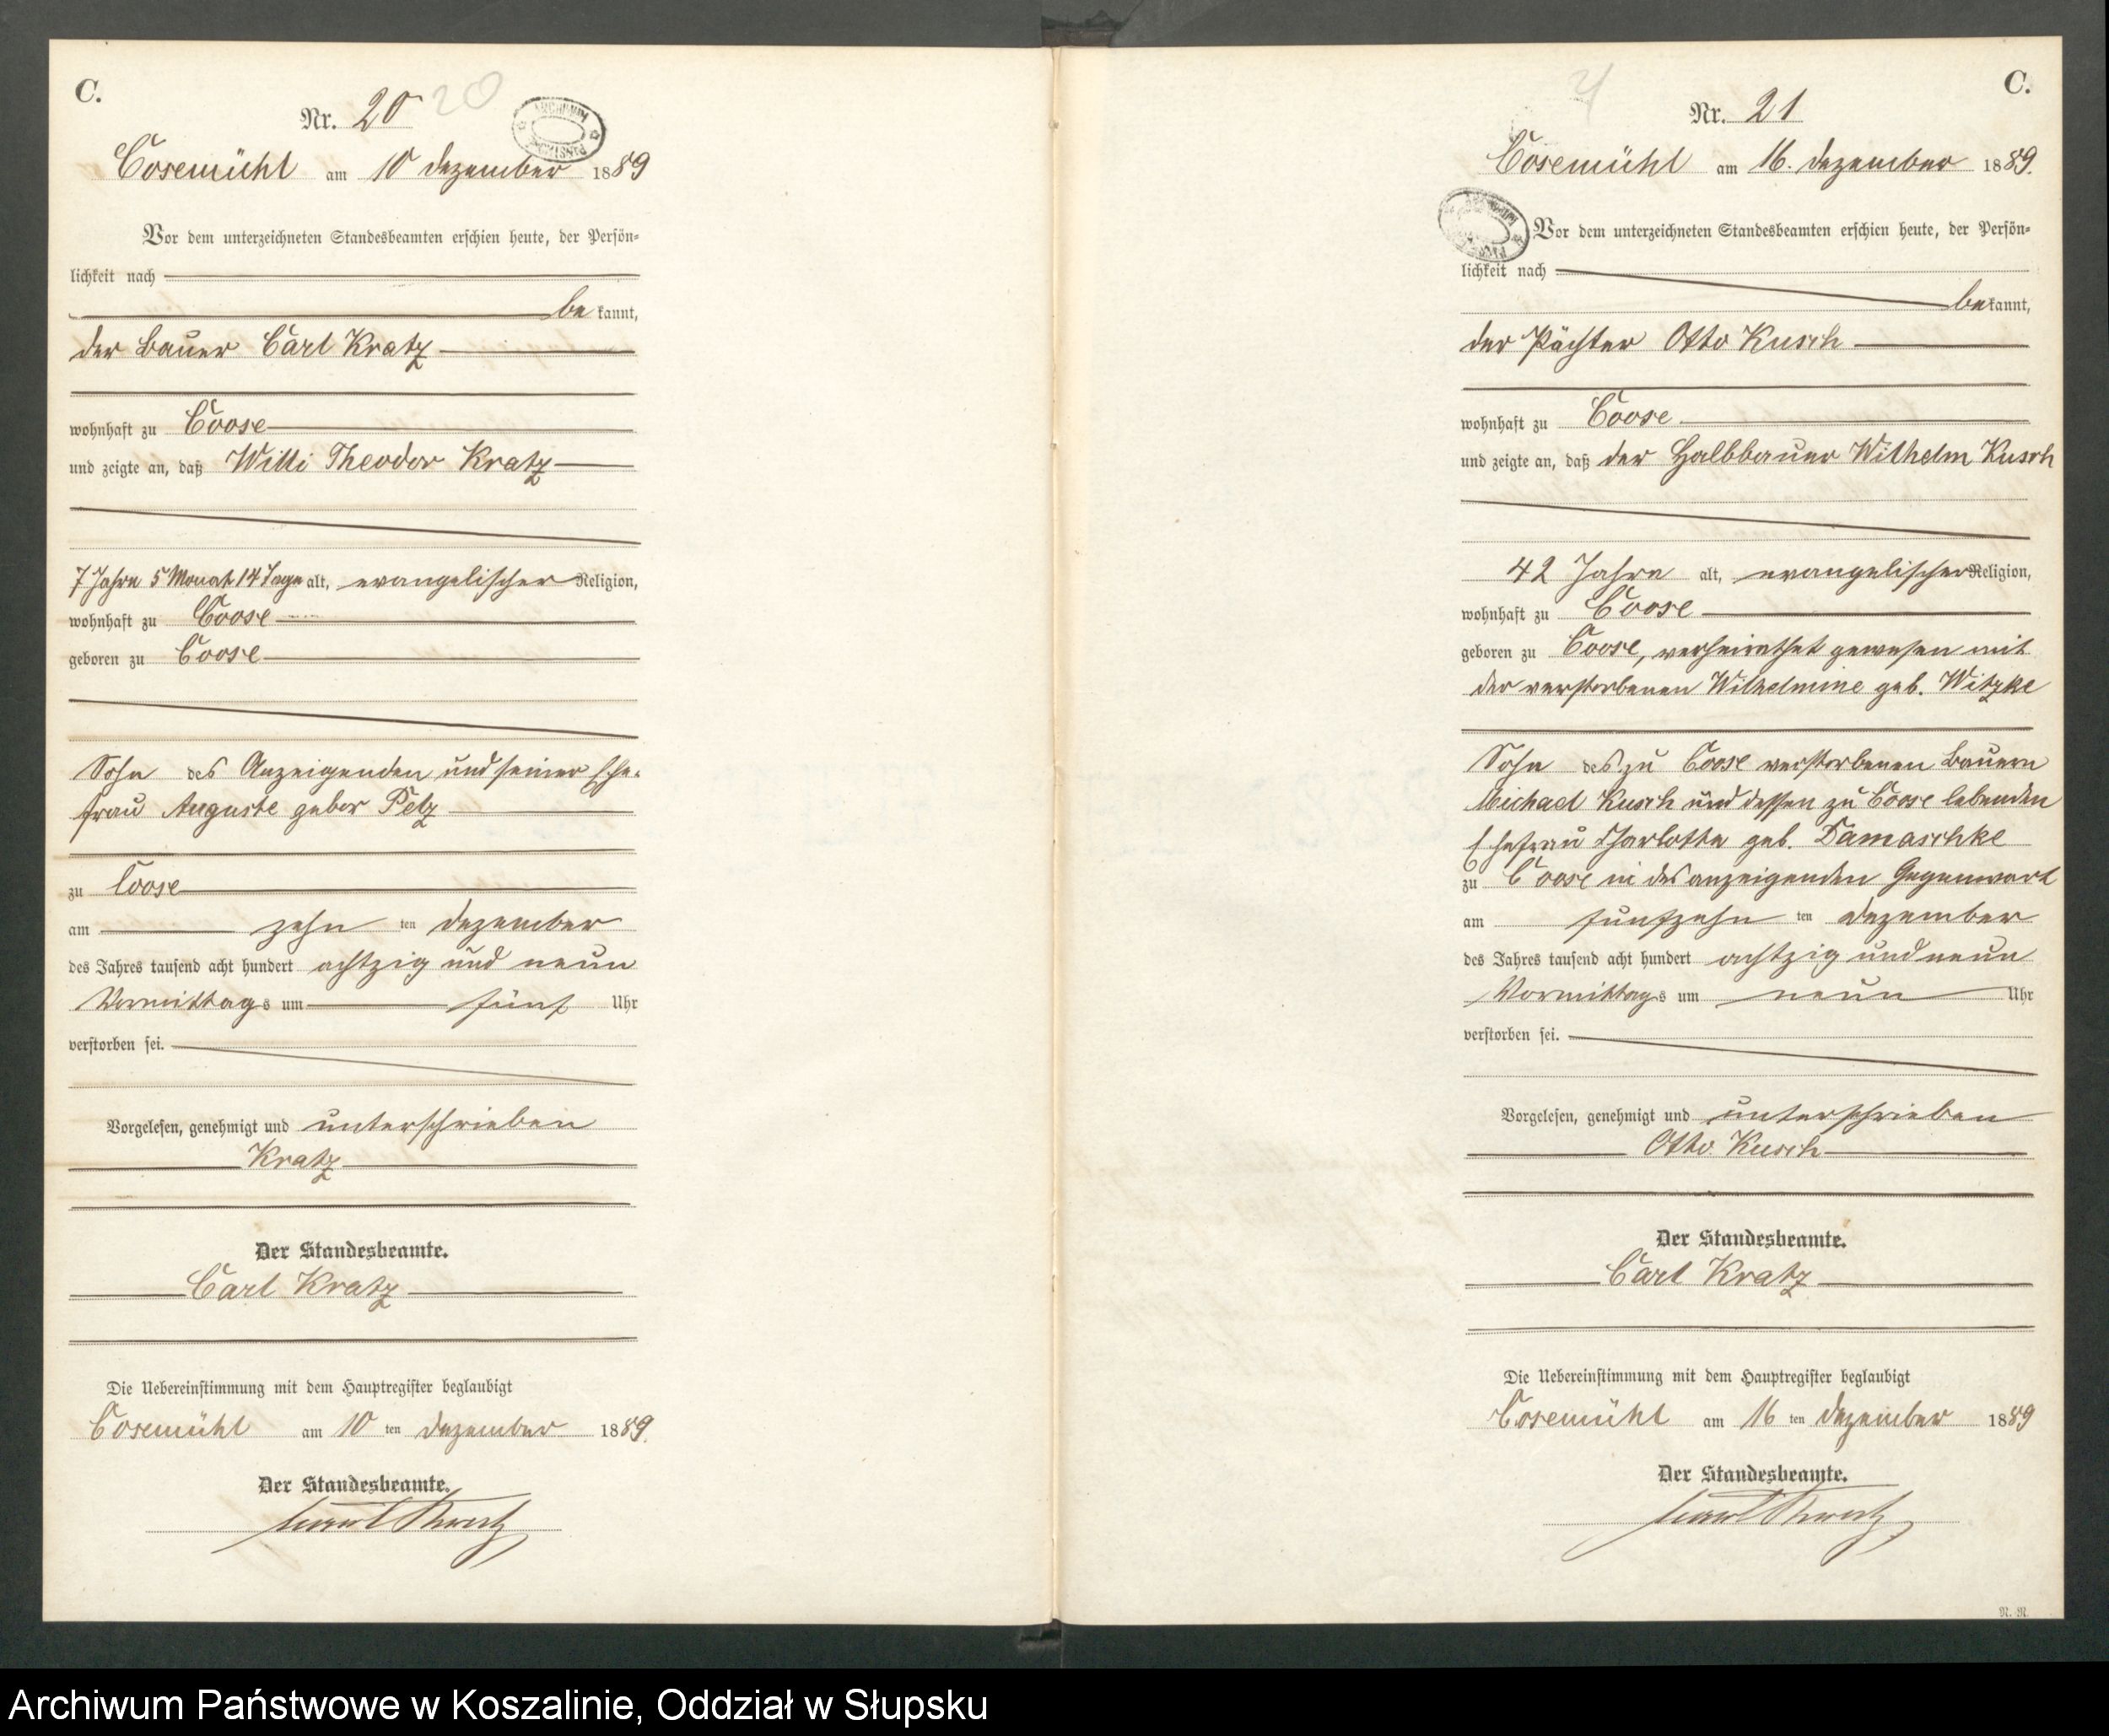 C.
Nr. 20 20
ARCHIWUM PAŃSTWOWE
Cosemühl am 10 Dezember 1889
Vor dem unterzeichneten Standesbeamten erschien heute, der Persön-
lichkeit nach
bekannt,
der Bauer Carl Kratz
wohnhaft zu Coose
und zeigte an, daß Willi Theodor Kratz
7 Jahre 5 Monat 14 Tage alt, evangelischer Religion,
wohnhaft zu Coose
geboren zu Coose
Sohn des Anzeigenden und seiner Ehe-
frau Auguste gebor Pelz
zu Coose
am zehn ten Dezember
des Jahres tausend acht hundert achtzig und neun
Vormittags um fünf Uhr
verstorben sei.
Vorgelesen, genehmigt und unterschrieben
Kratz
Der Standesbeamte.
Carl Kratz
Die Uebereinstimmung mit dem Hauptregister beglaubigt
Cosemühl am 10 ten Dezember 1889.
Der Standesbeamte.
Carl Kratz
C.
Nr. 21
Cosemühl am 16. Dezember 1889.
Vor dem unterzeichneten Standesbeamten erschien heute, der Persön-
lichkeit nach
bekannt,
der Pächter Otto Kusch
wohnhaft zu Coose
und zeigte an, daß der Halbbauer Wilhelm Kusch
42 Jahre alt, evangelischer Religion,
wohnhaft zu Coose
geboren zu Coose, verheirathet gewesen mit
der verstorbenen Wilhelmine geb. Witzke
Sohn des zu Coose verstorbenen Bauern
Michael Kusch und dessen zu Coose lebenden
Ehefrau Charlotte geb. Damaschke
zu Coose in des anzeigenden Gegenwart
am fünfzehn ten Dezember
des Jahres tausend acht hundert achtzig und neun
Vormittags um neun Uhr
verstorben sei.
Vorgelesen, genehmigt und unterschrieben
Otto Kusch
Der Standesbeamte.
Carl Kratz
Die Uebereinstimmung mit dem Hauptregister beglaubigt
Cosemühl am 16 ten Dezember 1889
Der Standesbeamte.
Carl Kratz
N. N.
Archiwum Państwowe w Koszalinie, Oddział w Słupsku